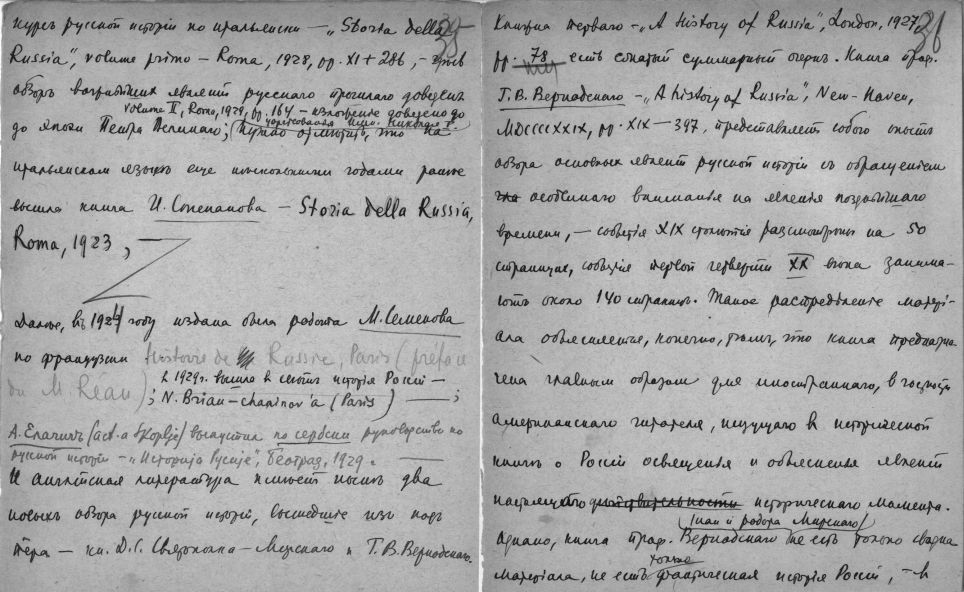 курсъ русской исторіи по итальянски – „Storia della
Russia", volume primo – Roma, 1928, pp. XI + 286, –
обзоръ важнѣйшихъ явленій русскаго прошлаго доведенъ
volume II, Roma, 1929, pp. 164 – изложеніе доведено до
царствованія Имп. Николая I.
до эпохи Петра Великаго; (нужно отмѣтить, что на
итальянскомъ языкѣ еще нѣсколькими годами ранѣе
вышла книга И. – Storia della Russia,
Roma, 1923,
Далѣе, въ 1924 году издана была работа М. Семенова
по французски Histoire de Russie, Paris (préface
du M. Réau);
въ 1929г. вышла исторія Россіи –
N. Brian-chaninov'a (Paris) —;
А. Елачичъ выпустилъ по сербски руководство по
русской исторіи – „Историја Русије", Београд, 1929. —
И англійская литература имѣетъ нынѣ два
новыхъ обзора русской исторіи, вышедшіе изъ подъ
пера – кн. Д. С. Святополка-Мирскаго и Г. В. Вернадскаго.
31
Книжка перваго – „A History of Russia", London, 1927,
pp. 78 есть сжатый суммарный очеркъ. Книга проф.
Г. В. Вернадскаго – „A history of Russia", New-Haven,
MDCCCCXXIX, pp. XIX – 397, представляетъ собою опытъ
обзора основныхъ явленій русской исторіи съ обращеніемъ
особеннаго вниманія на явленія позднѣйшаго
времени, – событія XIX столѣтія разсмотрѣны на 50
страницахъ, событія первой четверти XX вѣка занима-
ютъ около 140 страницъ. Такое распредѣленіе матері-
ала объясняется, конечно, тѣмъ, что книга предназна-
чена главнымъ образомъ для иностраннаго, въ частности
американскаго читателя, ищущаго въ исторической
книгѣ о Россіи освѣщенія и объясненія явленій
настоящаго дѣйствительности историческаго момента.
(как и работа Мирскаго)
Однако, книга проф. Вернадскаго не есть только сводка
только
матеріала, не есть фактическая исторія Россіи, – въ